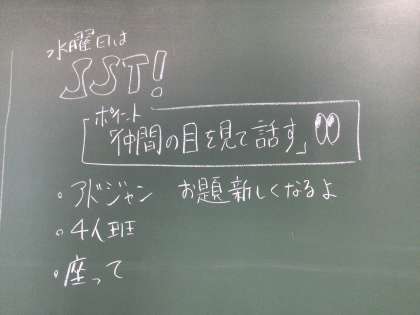 水曜日は
SST!
ポイント
「仲間の目を見て話す」
・アドジャン お題新しくなるよ
・4人班
・座って